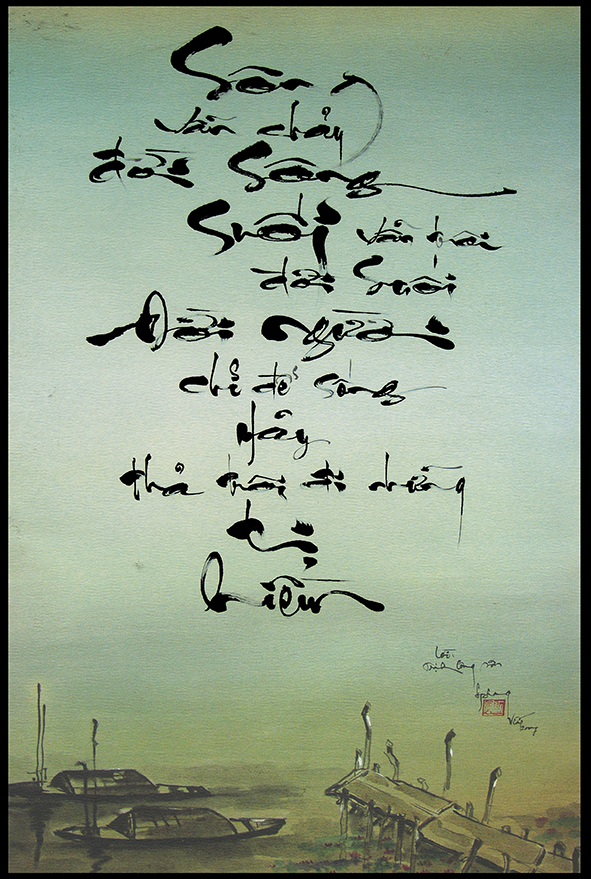 Sông
vẫn chảy
đời Sông
Suối vẫn trôi
đời Suối
Đời người
chỉ để sống
Hãy
thả trôi đi những
tị
hiềm
Lời:
Trịnh Công Sơn